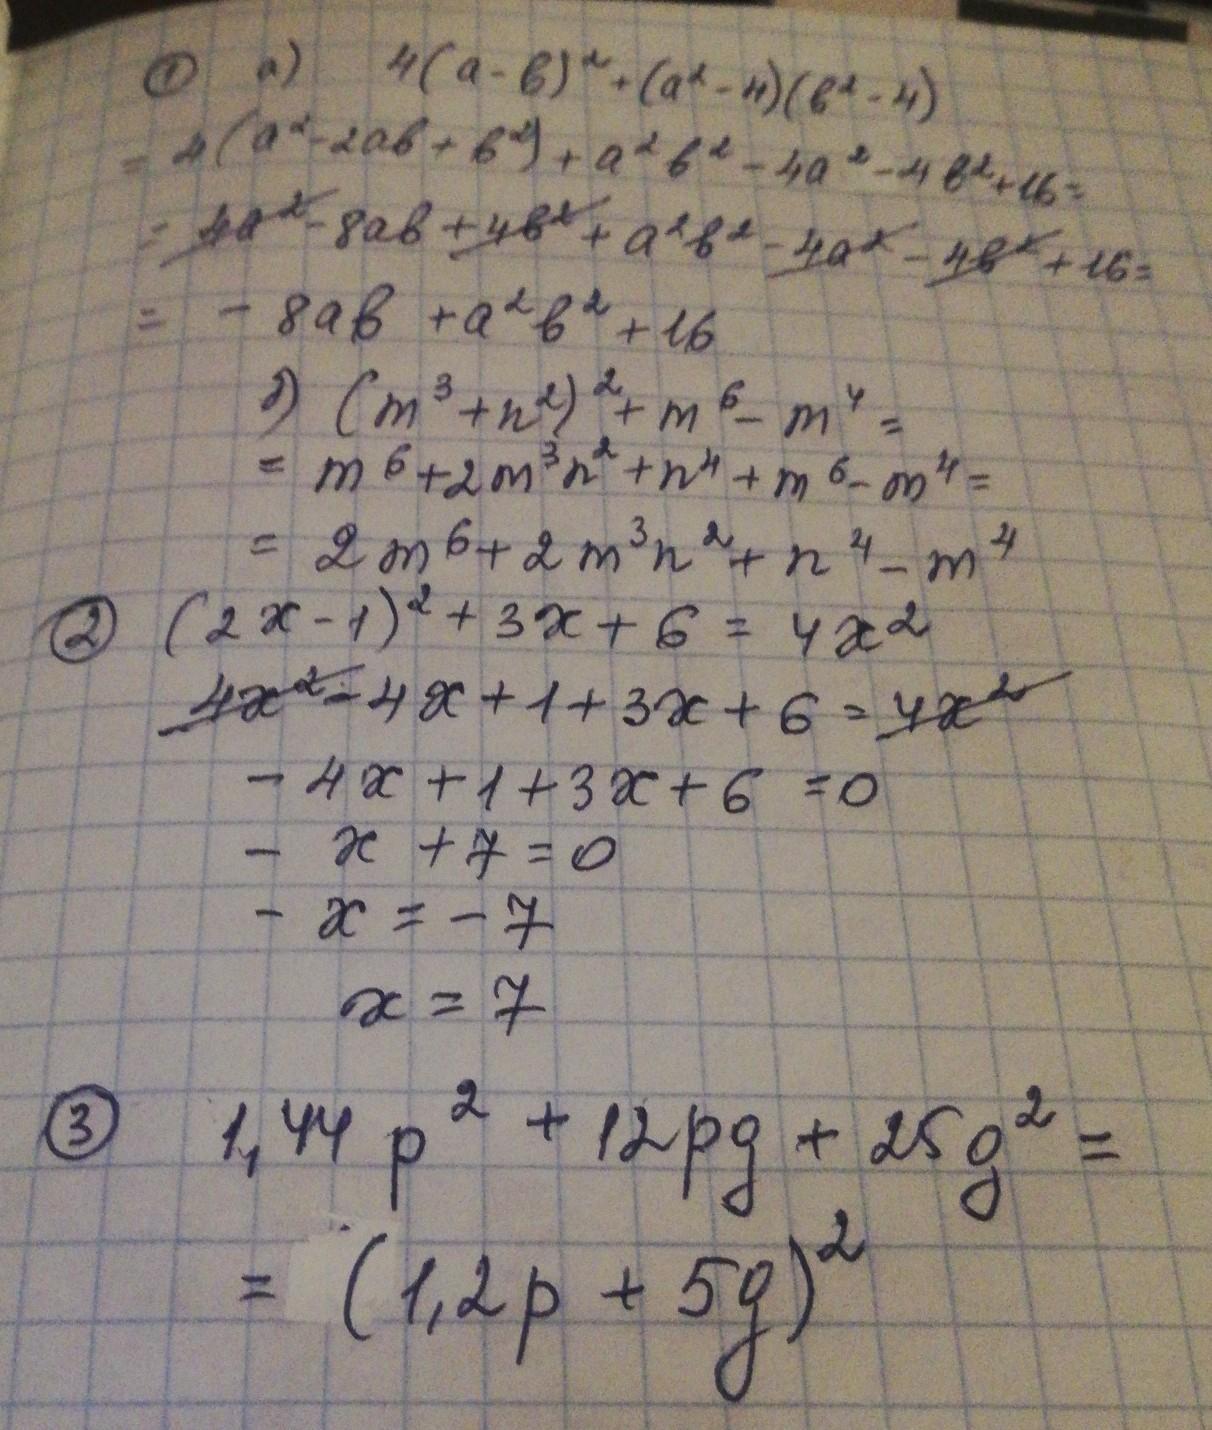 ① а) 4(a-b)² + (a²-4)(b²-4)
= 4(a²-2ab+b²) + a²b² - 4a² - 4b² + 16 =
= 4a² - 8ab + 4b² + a²b² - 4a² - 4b² + 16 =
= - 8ab + a²b² + 16
б) (m³+n²)² + m⁶ - m⁴ =
= m⁶ + 2m³n² + n⁴ + m⁶ - m⁴ =
= 2m⁶ + 2m³n² + n⁴ - m⁴
② (2x-1)² + 3x + 6 = 4x²
4x² - 4x + 1 + 3x + 6 = 4x²
- 4x + 1 + 3x + 6 = 0
- x + 7 = 0
- x = - 7
x = 7
③ 1,44 p² + 12pg + 25g² =
= (1,2p + 5g)²